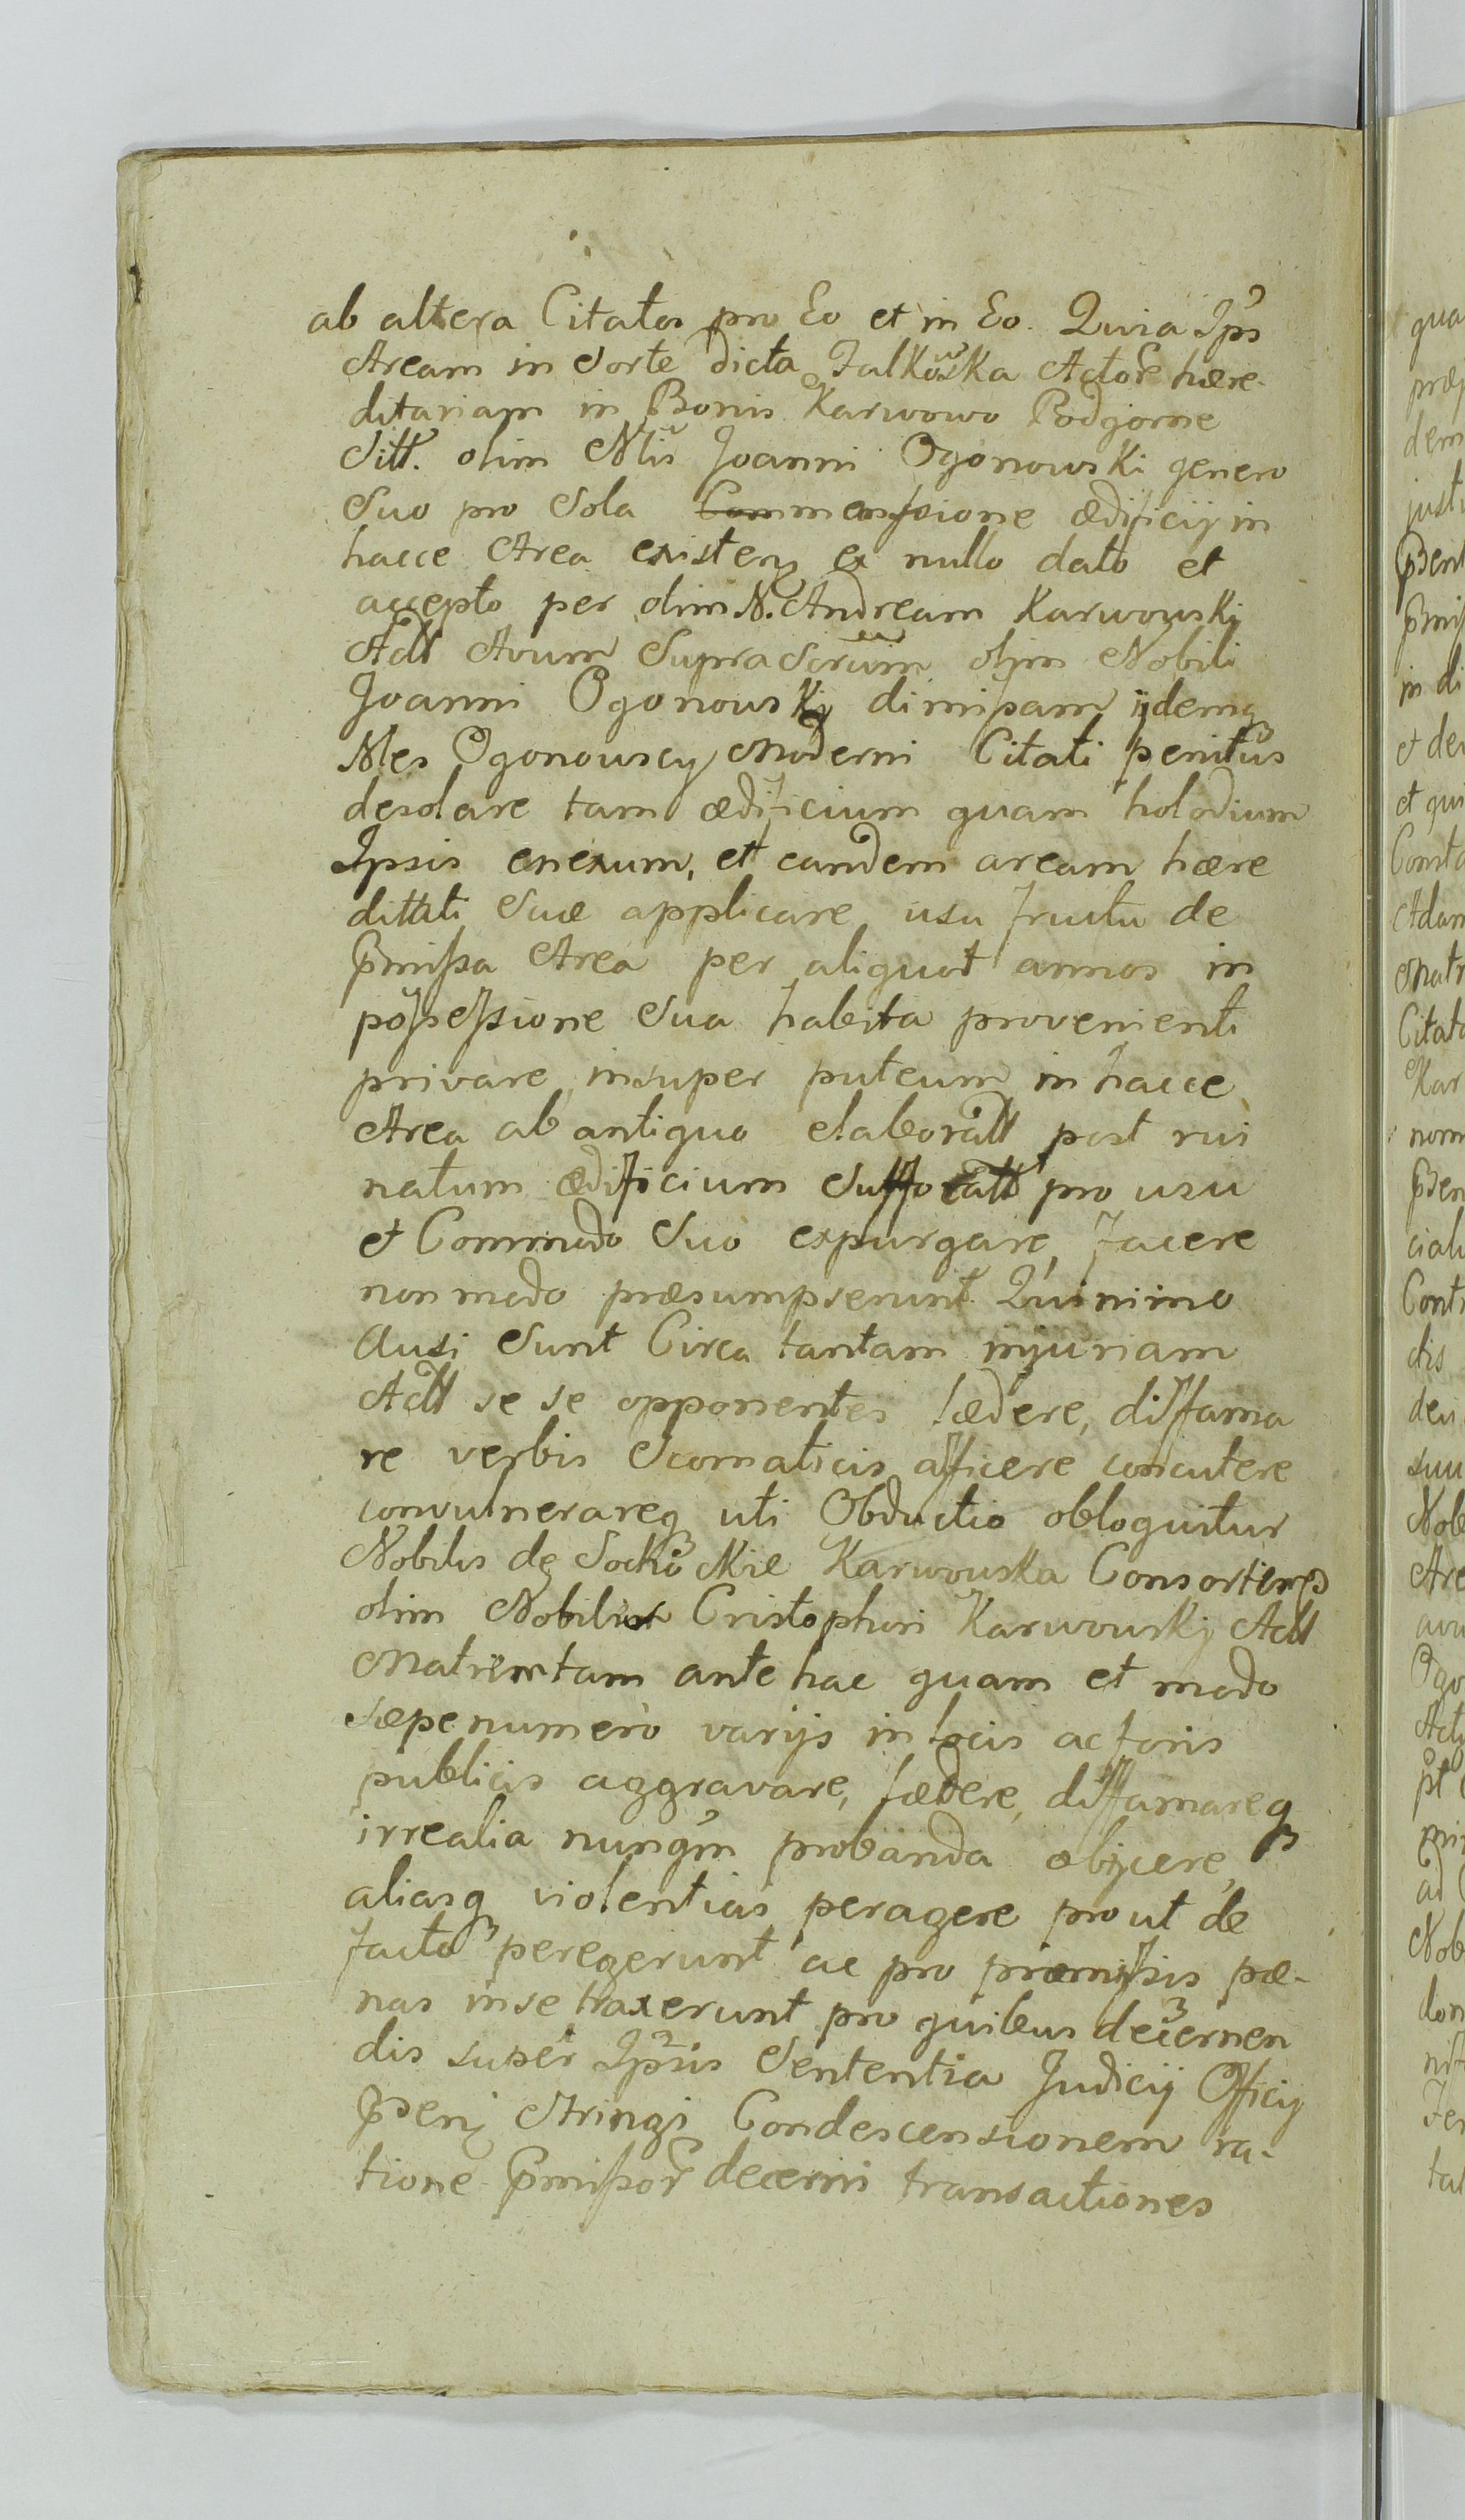 ab altera Citatos pro Eo et in Eo. Quia Ips
Aream in Sorte dicta Falkowska Actore hære-
ditariam in Bonis Karwowo Podgorne
Sitt. olim Nli Joanni Ogonowski genero
Suo pro Sola Commansione ædificij in
hacce Area existenq ex nullo dato et
accepto per olim N. Andream Karwowskj
Actt Avum Suprascrum olim Nobili
Joanni Ogonowskj dimissam ijdemq
Nles Ogonowscy Moderni Citati penitus
desolare tam ædificium quam holodium
Ipsis enexum, et eandem aream hære
dittati Suæ applicare, usu fructu de
pmissa Area per aliquot annos in
possessione Sua habita provenienti
privare, insuper puteum in hacce
Area ab antiquo elaboratt post rui
natum ædificium Suffocatt pro usu
et Commodo Suo expurgare, facere
non modo præsumpserunt. Quinimo
Ausi Sunt Circa tantam injuriam
Actt se se opponentes lædere, diffama
re verbis Scomaticis afficere concutere
convulnerareq uti Obductio obloquitur
Nobilis de Karwowska Consortem
olim Nobilis Cristophori Karwowskj Actt
Matrem tam ante hac quam et modo
sæpenumero varijs in locis ac foris
publicis aggravare, lædere, diffamareq
irrealia nunqm probanda objicere,
aliasq violentias peragere prout de
facto peregerunt ac pro præmissis pæ-
nas in se traxerunt pro quibus decernen
dis super Ipsis Sententia Judicij Officij
pseni Stringi Condescensionem ra-
tione pmissor decerni transactiones